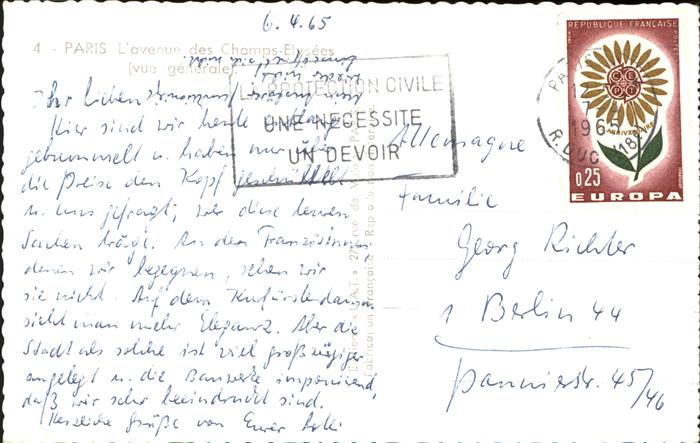 6.4.65
4 - PARIS L'avenue des Champs-Elysées
(vue générale)
Ihr Lieben
Hier sind wir heute entlang
gebummelt u. haben nur über
die Preise den Kopf geschüttelt
u. uns gefragt, wer diese teuren
Sachen trägt. An den Französinnen,
denen wir begegnen, sehen wir
sie nicht. Auf dem Kurfürstendamm
sieht man mehr Eleganz. Aber die
Stadt als solche ist viel großzügiger
angelegt u. die Bauwerke imponierend,
daß wir sehr beeindruckt sind.
Herzliche Grüße von Eurer
LA PROTECTION CIVILE
UNE NECESSITE
UN DEVOIR
REPUBLIQUE FRANÇAISE
POSTES
ANNIVERSAIRE
0,25
EUROPA
1965
R. DUC
Allemagne
Familie
Georg Richter
1 Berlin 44
Pannierstr. 45/46